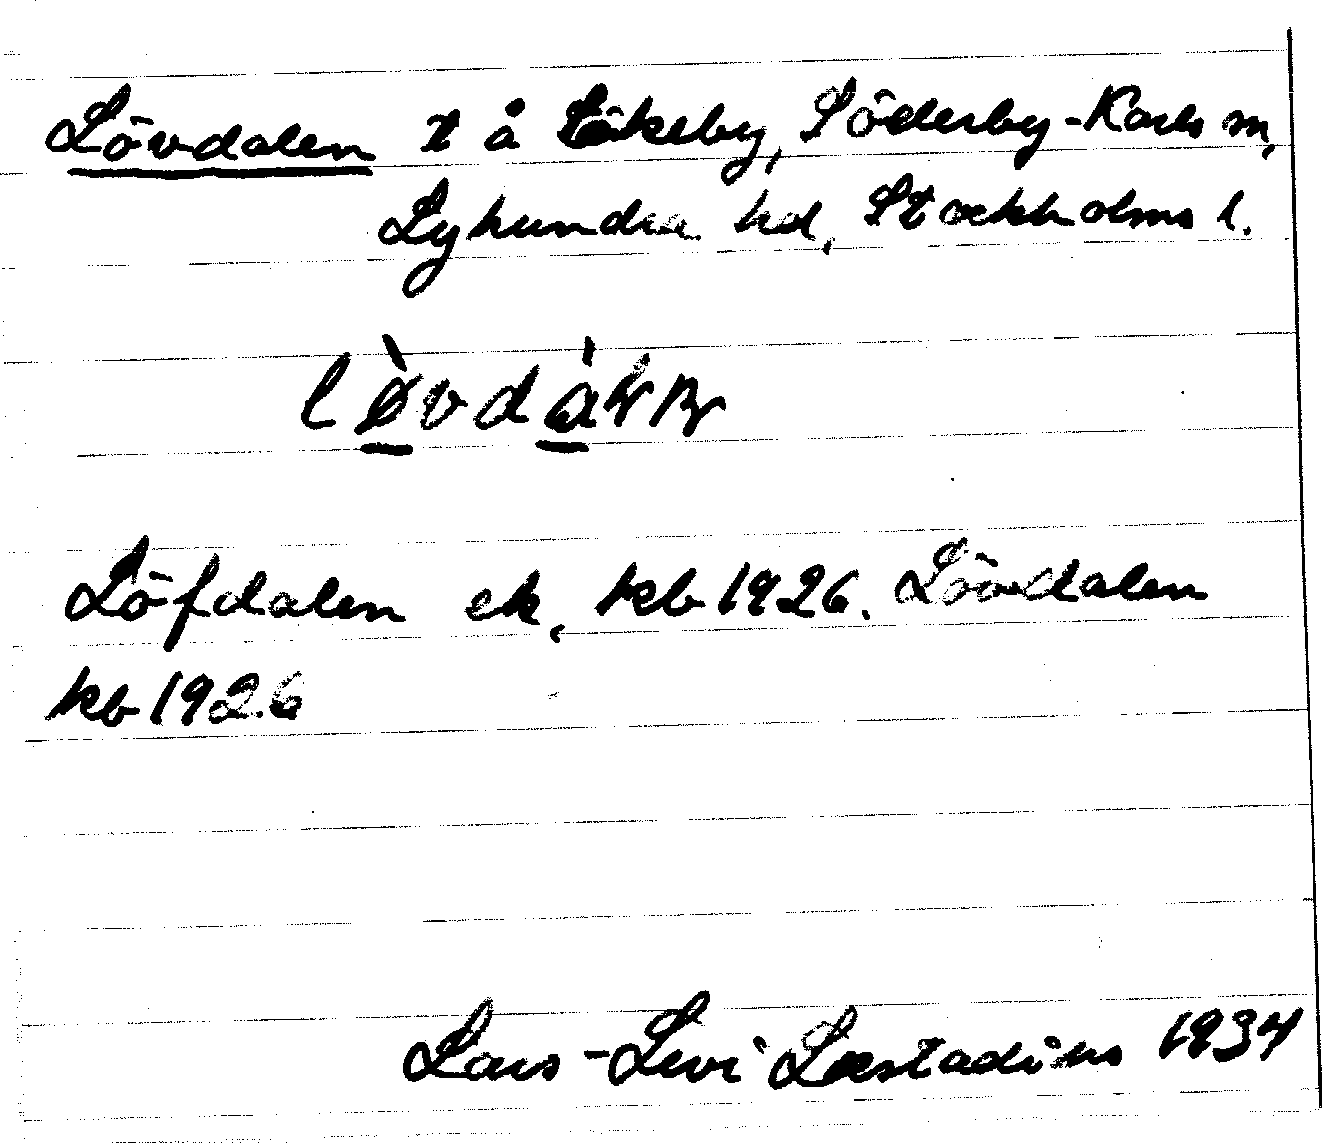 Lövdalen t å Lökeby, Söderby-Karls sn,
Lyhundra hd, Stockholms l.
Löfdalen ek, kb 1926. Lövdalen
kb 1926
Lars-Levi Læstadius 1934